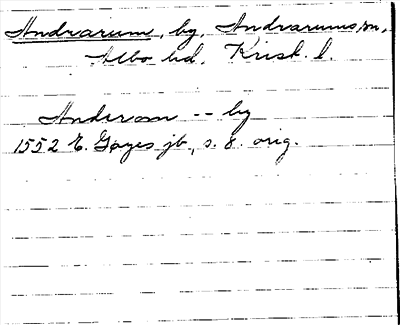 Andrarum, by, Andrarums sn,
Albo hd, Krist. l.
Anderom -- by
1552 E. Göyes jb, s. 8. orig.